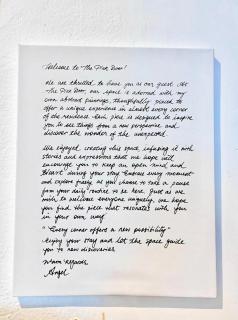 Welcome to The Pink Door!
We are thrilled to have you as our guest. At
The Pink Door, our space is adorned with my
own abstract paintings, thoughtfully placed to
offer a unique experience in almost every corner
of the residence. Each piece is designed to inspire
you to see things from a new perspective and
discover the wonder of the unexpected.
We enjoyed creating this space, infusing it with
stories and expressions that we hope will
encourage you to keep an open mind and
heart during your stay. Embrace every moment
and explore freely as you choose to take a pause
from your daily routine to be here. Just as we
wish to welcome everyone uniquely, we hope
you find the piece that resonates with you
in your own way.
"Every corner offers a new possibility"
Enjoy your stay and let the space guide
you to new discoveries.
Warm Regards,
Angel